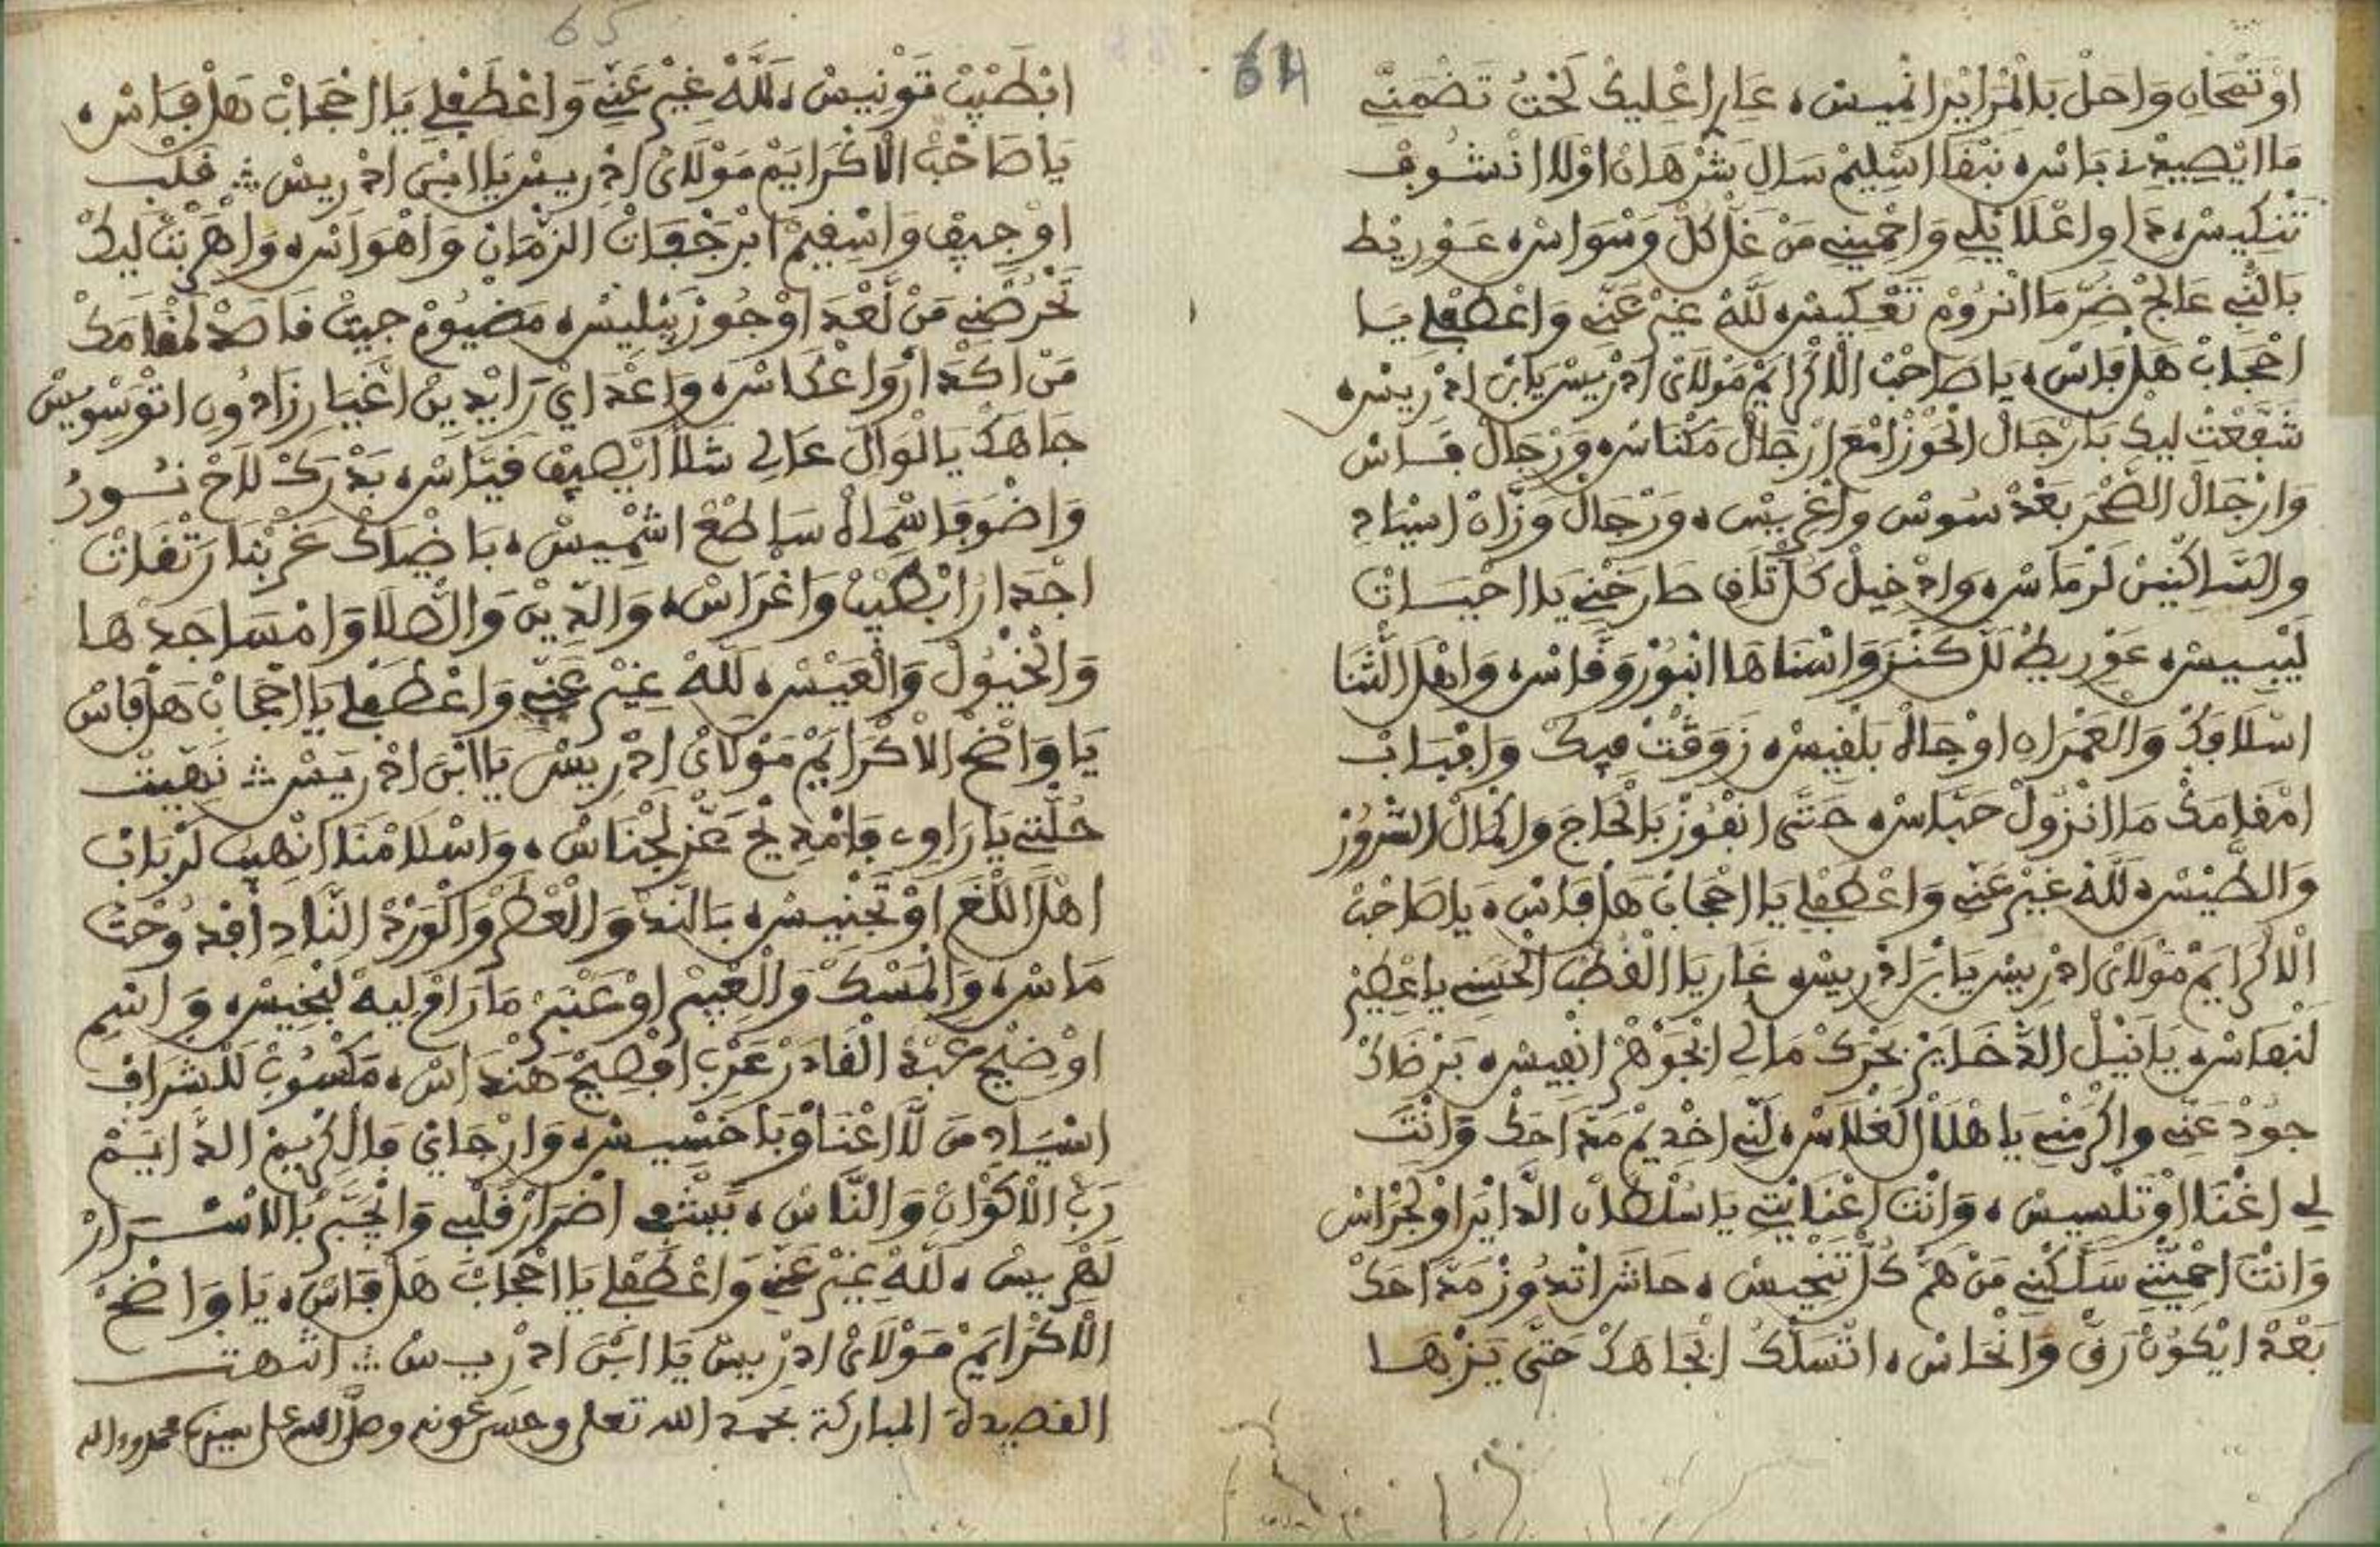 64
اوْتَمْحَانِ وَاحَلْ بَالْمْرَايَرْ انْمِيسْ، عَارْ اعْلِيكْ لَحْتُ تَضْمَنِّي
مَا ايْصِيبْنِي بَاسْ، نَبْقَا اسْلِيمْ سَالِ شَرْهَانْ اوْلَا انْشُوبْ
تَنْكِيسْ، دَاوِ اعْلَايْلِي وَاحْمِينِي مَنْ غَلْ كُلّْ وَسْوَاسْ، عَوْرِيطْ
بَالنّْبِي عَالَجْ ضَرّ مَا انْرُومْ تَعْكِيسْ، لَلَّهْ غِيرْ عَنِّي وَاعْطَفْلِي يَا
احْجَابْ هَلْ فَاسْ، يَا صَاحْبْ الْاكْرَايَمْ مَوْلَايْ ادْرِيسْ يَابْنْ ادْرِيسْ،
شَفَّعْتْ لِيكْ بَارْجَالْ الْحُوْزْ امْعَ ارْجَالْ مَكْنَاسْ، وَرْجَالْ فَاسْ
وَارْجَالْ الصَّحْرَ بَعْدْ سُوسْ وَاغْرِيسْ، وَرْجَالْ وَزَّانْ اسْيَادِ
وَالسَّاكْنِينْ لَرْمَاسْ، وَادْخِيلْ كُلّْ تَافِ طَارَحْنِي يَا احْبَسَاتْ
لَيْبِيسْ، عَوْرِيطْ لَلْ كَنْزْ وَاسْنَاهَا انْبُوزْ وَفَاسْ، وَاهْلْ الثّْنَا
اسْلَافَكْ وَالعَمْرَانِ اوْجَاهْ بَلْقِيسْ، زَوَّقْتْ فِيكْ وَاقْبَابْ
امْقَامَكْ مَا انْزُولْ حَبَّاسْ، حَتَّى انْفُوزْ بَالْحَاجَ وَاكْمَالْ السّْرُورْ
وَالطَّيْسْ، لَلَّهْ غِيرْ عَنِّي وَاعْطَفْلِي يَا احْجَابْ هَلْ فَاسْ، يَا صَاحْبْ
الْاكْرَايَمْ مَوْلَايْ ادْرِيسْ يَابْنْ ادْرِيسْ، عَارْ يَا الْقُطْبْ الْحَسْنِي يَا عْظِيمْ
لَنْفَاسْ، يَا نَيْلْ الذّْخَايَرْ بَحْرَكْ مَالِ الْجَوْهَرْ انْفِيسْ، بَرْضَاكْ
جُودْ عَنِّي وَاكْرَمْنِي يَا هْلَالْ لَغْلَاسْ، لَنِّي اخْدِيمْ مَدَّاحَكْ وَانْتَ
لِي اغْنَا اوْتَلْبِيسْ، وَانْتَ اعْنَايْتِي يَا سُلْطَانْ الدَّايَرْ اوْلَجْرَاسْ
وَانْتَ احْمِيتْنِي سَلَّكْنِي مَنْ هَمّْ كُلّْ تَنْحِيسْ، حَاشَ اتْدُوزْ مَدَّاحَكْ
بَعْدْ ايْكُونْ رَقّْ وَانْحَاسْ، اتْسَلْكُ ابْجَاهَكْ حَتَّى يَزْهَا
65
ابْطَبِيبْ تَوْنِيسْ، لَلَّهْ غِيرْ عَنِّي وَاعْطَفْلِي يَا احْجَابْ هَلْ فَاسْ،
يَا صَاحْبْ الْاكْرَايَمْ مَوْلَايْ ادْرِيسْ يَا ابْنْ ادْرِيسْ ∴ قَلْبِ
اوْجِيفْ وَاسْقِيمْ ابْرَجْفَاتْ الزّْمَانْ وَاهْوَاسْ، وَاهْرَبْتْ لِيكْ
تَحْرَصْنِي مَنْ لَعْدَ اوْجُوزْ يَبْلِيسْ، مَضْيُومْ جِيتْ قَاصَدْ لَمْقَامَكْ
مَنْ اكْدَارْ وَاعْكَاسْ، وَاعْدَايْ زَايْدِينْ اغْيَارْ زَادُونِ اتْوَسْوِيسْ
جَاهَكْ يَا لْوَالْ عَالِي شَلَّا ايْصِيفْ قَيَّاسْ، بَدْرَكْ لَاحْ نُورُ
وَاضْوَ فَاسْمَاهْ سَاطَعْ اشْمِيسْ، بَاضْيَاكْ غَرْبْنَا رَتْفَاتْ
اجْدَارْ ابْطِيبْ وَاغْرَاسْ، وَالدِّينْ وَالصّْلَا وَامْسَاجَدْهَا
وَالْخْيُولْ وَالْعَيْسْ، لَلَّهْ غِيرْ عَنِّي وَاعْطَفْلِي يَا احْجَابْ هَلْ فَاسْ
يَا وَاضَحْ الْاكْرَايَمْ مَوْلَايْ ادْرِيسْ يَا ابْنْ ادْرِيسْ ∴ نَهِّيتْ
حُلّْتِي يَا رَاوِي فَامْدِيحْ عَزّْ لَجْنَاسْ، وَاسْلَامْنَا انْهِيبْ لَرْبَابْ
اهْلْ اللّْغَ اوْتَجْنِيسْ، بَالنَّدّْ وَالْعْطَرْ وَالْوَرْدْ النَّادِ افْدُوحْتْ
مَاسْ، وَالْمَسْكْ وَالْعْبِيرْ اوْعَنْبَرْ مَارَافْ لِيهْ تَبْخِيسْ، وَاسْمِ
اوْضِيحْ عَبْدْ الْقَادَرْ عَرْبِ افْصِيحْ هَنْدَاسْ، مَكْسُوبْ لَلشْرَافْ
اسْيَادِ مَنْ لَا اغْنَاوْ بَاخْسِيسْ، وَارْجَايْ فَالْكْرِيمْ الدَّايَمْ
رَبّْ الْاكْوَانْ وَالنَّاسْ، يَشْفِي اضْرَارْ قَلْبِي وَانْجَبَّرْ بَالاسْرَارْ
لَهْرِيسْ، لَلَّهْ غِيرْ عَنِّي وَاعْطَفْلِي يَا احْجَابْ هَلْ فَاسْ، يَا وَاضَحْ
الْاكْرَايَمْ مَوْلَايْ ادْرِيسْ يَا ابْنْ ادْرِيسْ ∴ انتهت
القصيدة المباركة بحمد الله تعلى وحسن عونه وصلى الله على سيدنا محمد وءاله